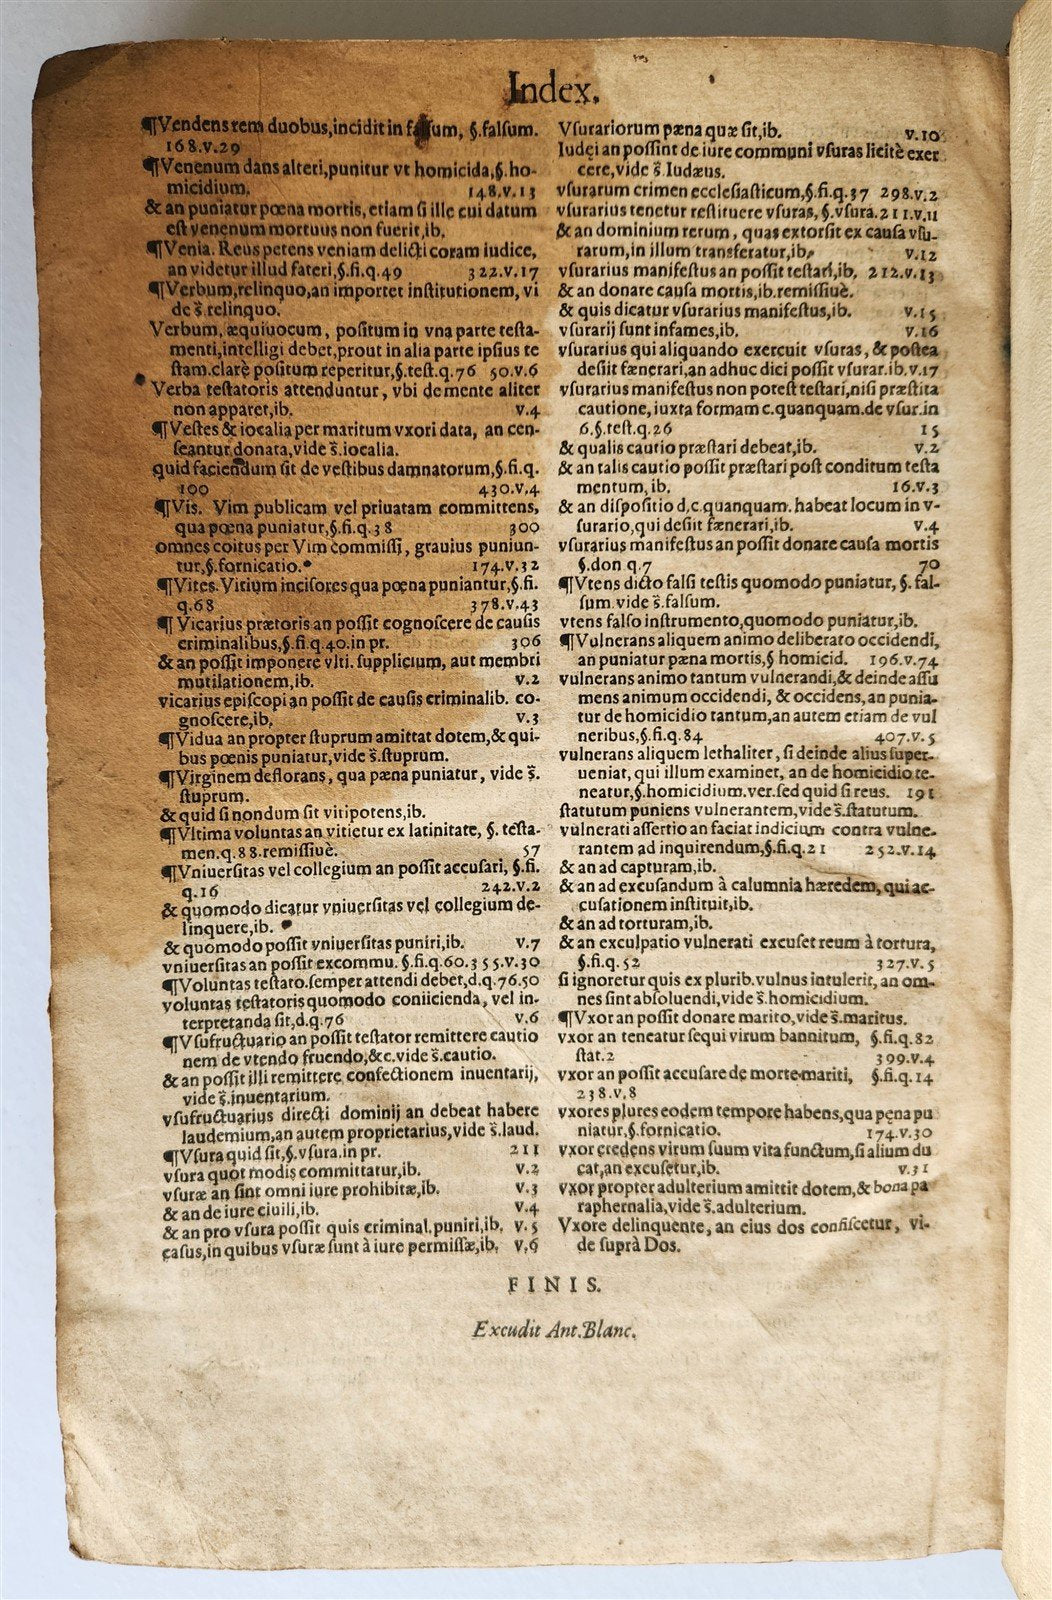 Index.
¶Vendens rem duobus,incidit in falsum, §.falsum.
168.v.29
¶Venenum dans alteri,punitur vt homicida,§.ho-
micidium. 148.v.13
& an puniatur pœna mortis, etiam si ille cui datum
est venenum mortuus non fuerit,ib.
¶Venia. Reus petens veniam delicti coram iudice,
an videtur illud fateri,§.fi.q.49 322.v.17
¶Verbum,relinquo,an importet institutionem, vi
de s̃.relinquo.
Verbum, æquiuocum, positum in vna parte testa-
menti,intelligi debet,prout in alia parte ipsius te
stam.clarè positum reperitur,§.test.q.76 50.v.6
Verba testatoris attenduntur, vbi de mente aliter
non apparet,ib. v.4
¶Vestes & iocalia per maritum vxori data, an cen-
seantur donata,vide s̃.iocalia.
quid faciendum sit de vestibus damnatorum,§.fi.q.
100 430.v.4
¶Vis. Vim publicam vel priuatam committens,
qua pœna puniatur,§.fi.q.38 300
omnes coitus per Vim commissi, grauius puniun-
tur,§.fornicatio. 174.v.32
¶Vites. Vitium incisores qua pœna puniantur,§.fi.
q.68 378.v.43
¶ Vicarius prætoris an possit cognoscere de causis
criminalibus,§.fi.q.40.in pr. 306
& an possit imponere vlti. supplicium, aut membri
mutilationem,ib. v.2
vicarius episcopi an possit de causis criminalib. co-
gnoscere,ib. v.3
¶Vidua an propter stuprum amittat dotem,& qui-
bus pœnis puniatur,vide s̃.stuprum.
¶Virginem deflorans, qua pæna puniatur, vide s̃.
stuprum.
& quid si nondum sit vitipotens,ib.
¶Vltima voluntas an vitietur ex latinitate, §. testa-
men.q.88.remissiuè. 57
¶Vniuersitas vel collegium an possit accusari, §.fi.
q.16 242.v.2
& quomodo dicatur vniuersitas vel collegium de-
linquere,ib.
& quomodo possit vniuersitas puniri,ib. v.7
vniuersitas an possit excommu. §.fi.q.60.355.v.30
¶Voluntas testato.semper attendi debet,d.q.76.50
voluntas testatoris quomodo coniicienda, vel in-
terpretanda sit,d.q.76 v.6
¶Vsufructuario an possit testator remittere cautio
nem de vtendo fruendo,&c.vide s̃.cautio.
& an possit illi remittere confectionem inuentarij,
vide s̃.inuentarium.
vsufructuarius directi dominij an debeat habere
laudemium,an autem proprietarius,vide s̃.laud.
¶Vsura quid sit,§.vsura.in pr. 211
vsura quot modis committatur,ib. v.2
vsuræ an sint omni iure prohibitæ,ib. v.3
& an de iure ciuili,ib. v.4
& an pro vsura possit quis criminal.puniri,ib. v.5
casus,in quibus vsuræ sunt à iure permissæ,ib. v.6
Vsurariorum pæna quæ sit,ib. v.10
Iudęi an possint de iure communi vsuras licitè exer
cere,vide s̃.Iudæus.
vsurarum crimen ecclesiasticum,§.fi.q.37 298.v.2
vsurarius tenetur restituere vsuras, §.vsura.211.v.11
& an dominium rerum, quas extorsit ex causa vsu-
rarum,in illum transferatur,ib. v.12
vsurarius manifestus an possit testari,ib. 212.v.13
& an donare causa mortis,ib.remissiuè.
& quis dicatur vsurarius manifestus,ib. v.15
vsurarij sunt infames,ib. v.16
vsurarius qui aliquando exercuit vsuras, & postea
desiit fænerari,an adhuc dici possit vsurar.ib.v.17
vsurarius manifestus non potest testari,nisi præstita
cautione, iuxta formam c.quanquam.de vsur.in
6.§.test.q.26 15
& qualis cautio præstari debeat,ib. v.2
& an talis cautio possit præstari post conditum testa
mentum, ib. 16.v.3
& an dispositio d,c.quanquam. habeat locum in v-
surario,qui desiit fænerari,ib. v.4
vsurarius manifestus an possit donare causa mortis
§.don q.7 70
¶Vtens dicto falsi testis quomodo puniatur, §. fal-
sum.vide s̃.falsum.
vtens falso instrumento,quomodo puniatur,ib.
¶Vulnerans aliquem animo deliberato occidendi,
an puniatur pæna mortis,§ homicid. 196.v.74
vulnerans animo tantum vulnerandi,& deinde assu
mens animum occidendi, & occidens,an punia-
tur de homicidio tantum,an autem etiam de vul
neribus,§.fi.q.84 407.v.5
vulnerans aliquem lethaliter, si deinde alius super-
ueniat, qui illum examinet, an de homicidio te-
neatur,§.homicidium.ver.sed quid si reus. 191
statutum puniens vulnerantem,vide s̃.statutum.
vulnerati assertio an faciat indicium contra vulne-
rantem ad inquirendum,§.fi.q.21 252.v.14
& an ad capturam,ib.
& an ad excusandum à calumnia hæredem, qui ac-
cusationem instituit,ib.
& an ad torturam,ib.
& an exculpatio vulnerati excuset reum à tortura,
§.fi.q.52 327.v.5
si ignoretur quis ex plurib.vulnus intulerit, an om-
nes sint absoluendi,vide s̃.homicidium.
¶Vxor an possit donare marito,vide s̃.maritus.
vxor an teneatur sequi virum bannitum, §.fi.q.82
stat.2 399.v.4
vxor an possit accusare de morte mariti, §.fi.q.14
238.v.8
vxores plures eodem tempore habens,qua pęna pu
niatur,§.fornicatio. 174.v.30
vxor credens virum suum vita functum,si alium du
cat,an excusetur,ib. v.31
vxor propter adulterium amittit dotem,& bona pa
raphernalia,vide s̃.adulterium.
Vxore delinquente, an eius dos confiscetur, vi-
de suprà Dos.
FINIS.
Excudit Ant.Blanc.